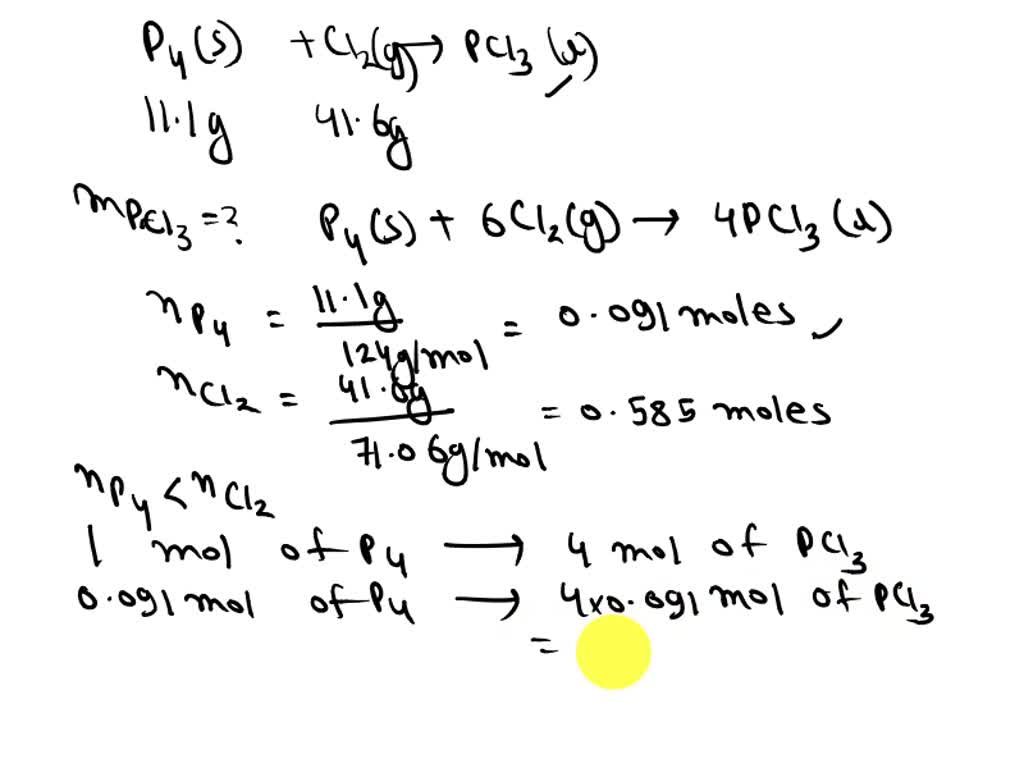 P4(s) + Cl2(g) → PCl3(l)
11.1g 41.6g
mPCl3 = ?  P4(s) + 6Cl2(g) → 4PCl3(l)
nP4 = 11.1g / 124g/mol = 0.091 moles ✓
nCl2 = 41.6g / 71.06g/mol = 0.585 moles
nP4 < nCl2
1 mol of P4 → 4 mol of PCl3
0.091 mol of P4 → 4x0.091 mol of PCl3
=